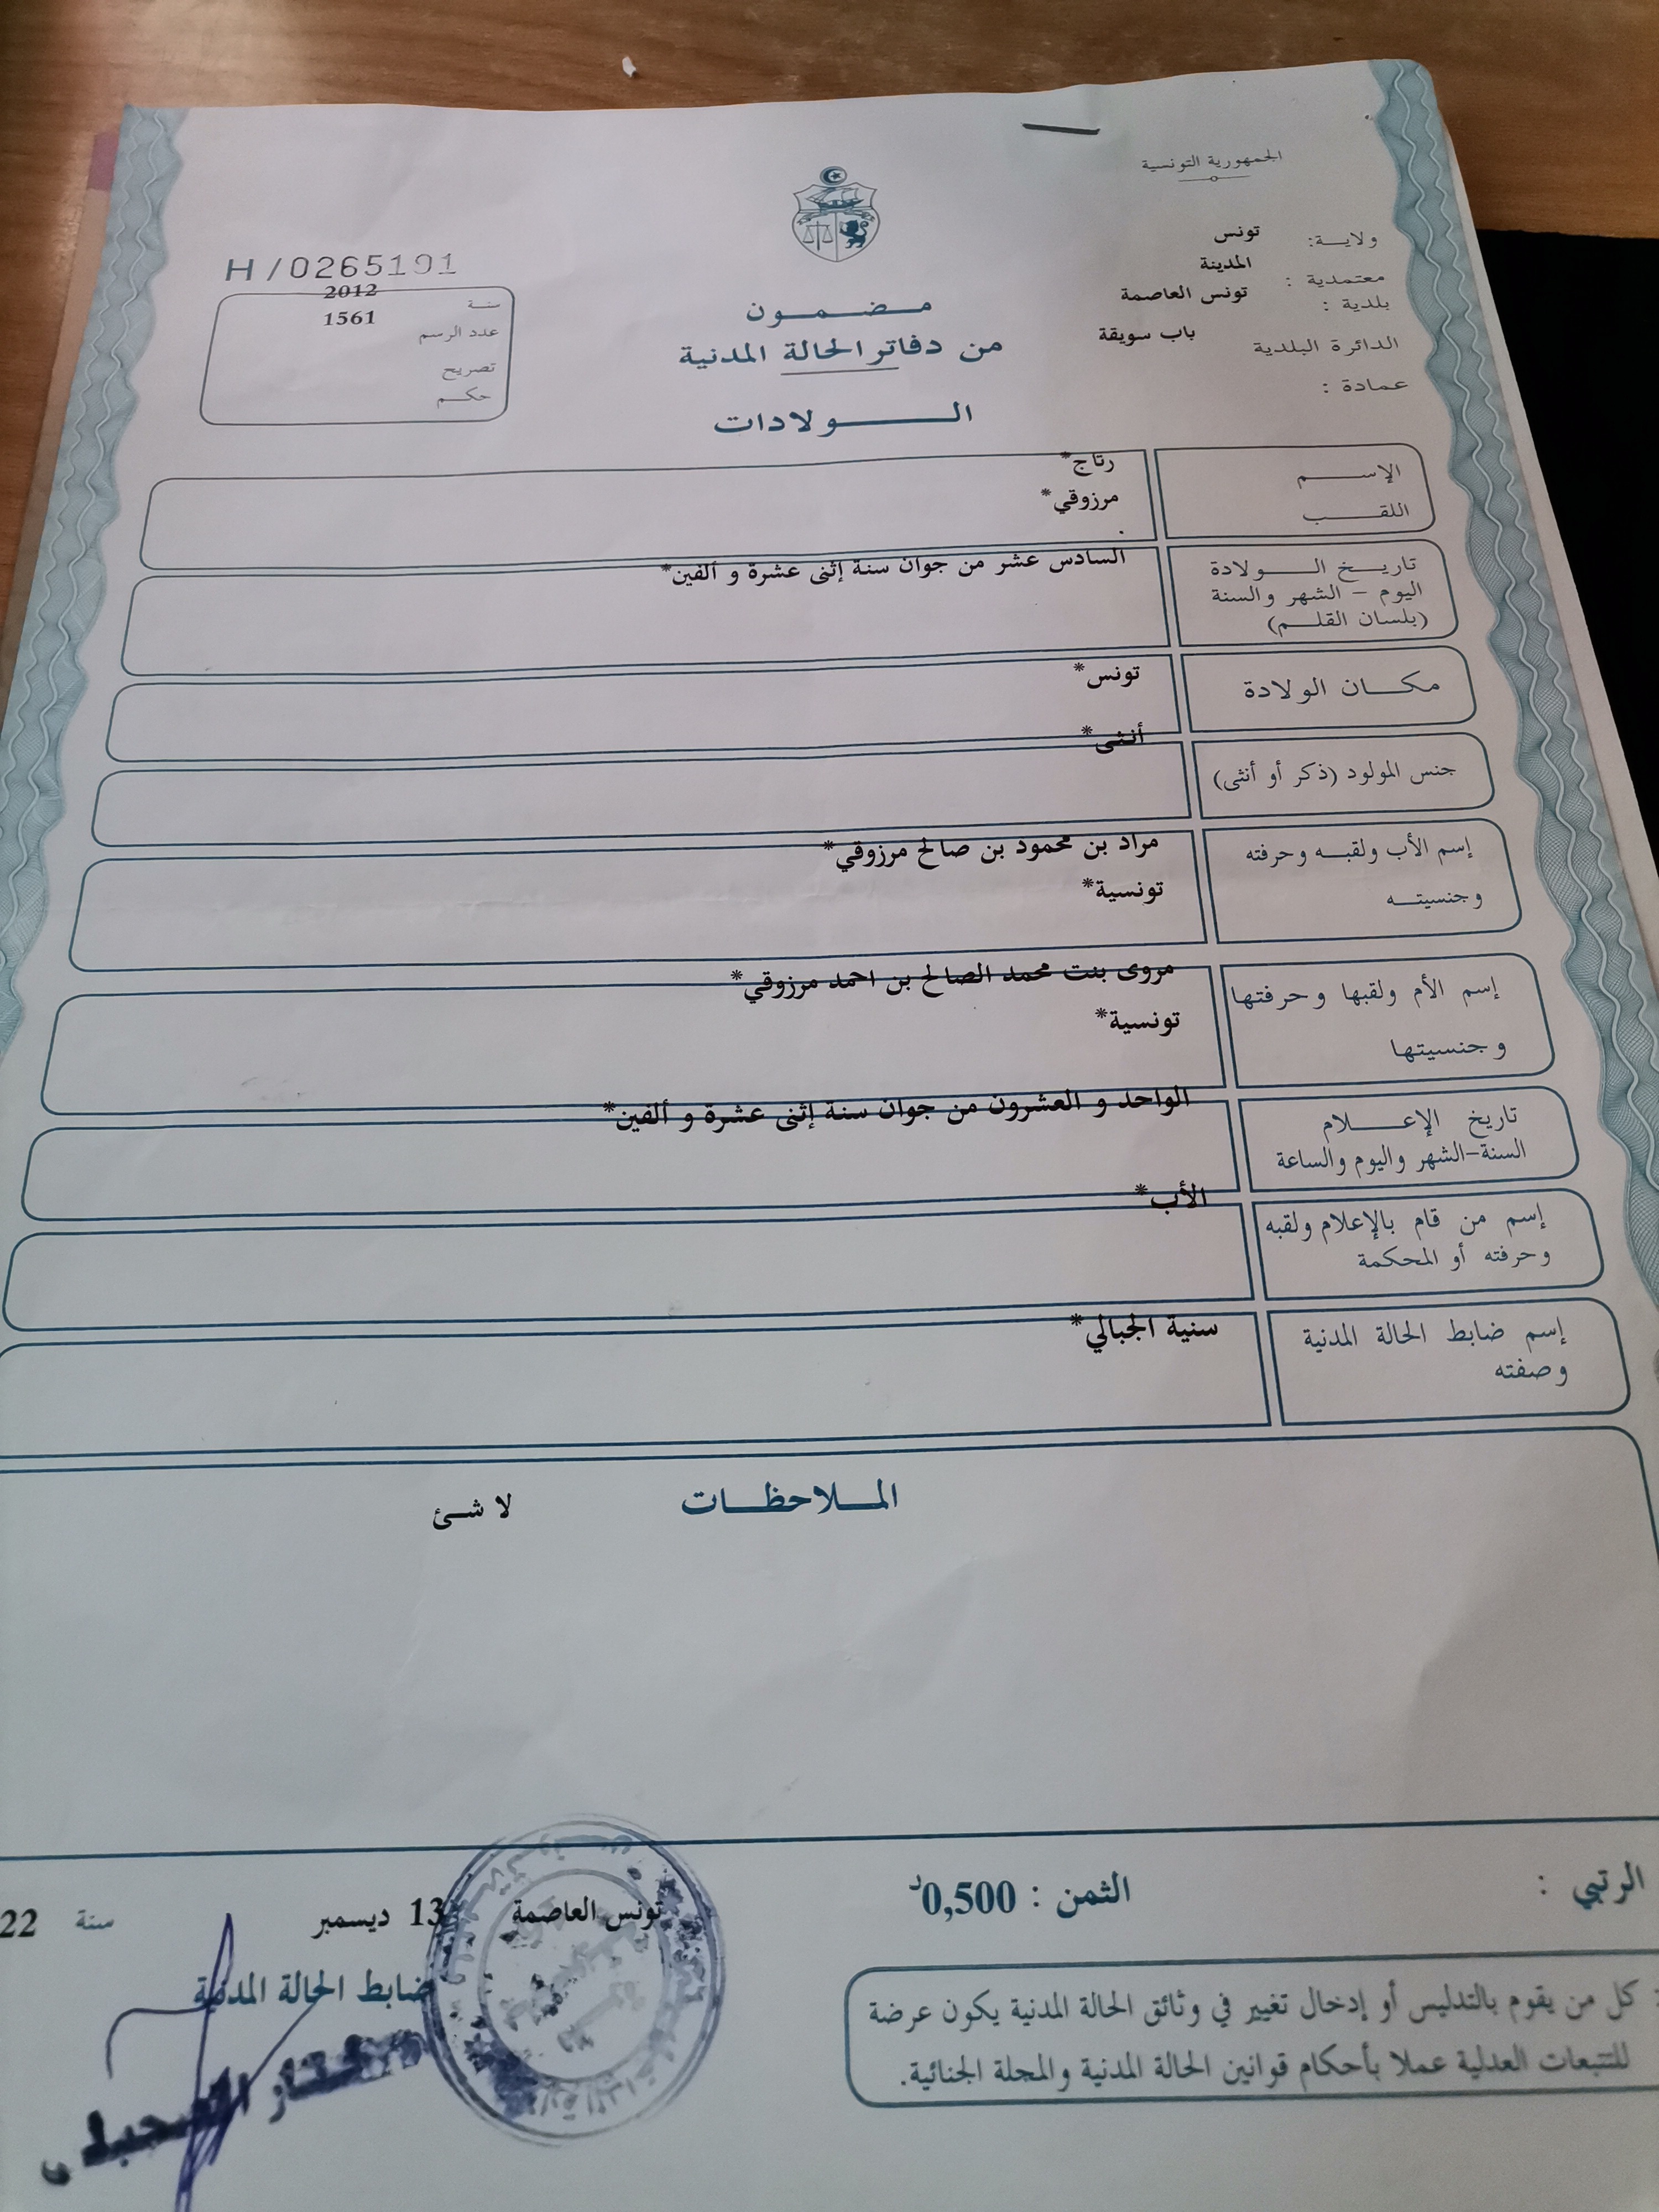 الجمهورية التونسية
ولاية: تونس
معتمدية : المدينة
بلدية : تونس العاصمة
الدائرة البلدية باب سويقة
عمادة :
مضمون
من دفاتر الحالة المدنية
الولادات
H/0265191
سنة 2012
عدد الرسم 1561
تصريح
حكم
الإسم رتاج*
اللقب مرزوقي*
تاريخ الولادة السادس عشر من جوان سنة إثنى عشرة و ألفين*
اليوم - الشهر والسنة
(بلسان القلم)
مكان الولادة تونس*
جنس المولود (ذكر أو أنثى) أنثى*
إسم الأب ولقبه وحرفته مراد بن محمود بن صالح مرزوقي*
وجنسيته تونسية*
إسم الأم ولقبها وحرفتها مروى بنت محمد الصالح بن احمد مرزوقي*
وجنسيتها تونسية*
تاريخ الإعلام الواحد و العشرون من جوان سنة إثنى عشرة و ألفين*
السنة-الشهر واليوم والساعة
إسم من قام بالإعلام ولقبه الأب*
وحرفته أو المحكمة
إسم ضابط الحالة المدنية سنية الجبالي*
وصفته
الملاحظات لا شئ
الثمن : 0,500د
تونس العاصمة 13 ديسمبر سنة 22
ضابط الحالة المدنية
كل من يقوم بالتدليس أو إدخال تغيير في وثائق الحالة المدنية يكون عرضة
للتتبعات العدلية عملا بأحكام قوانين الحالة المدنية والمجلة الجنائية.